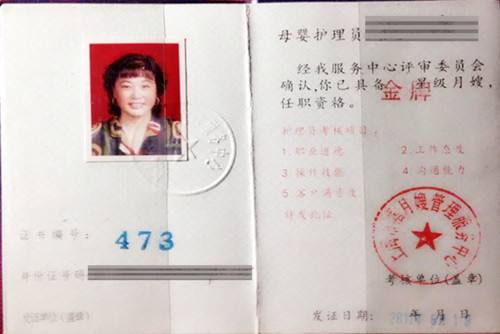 证书编号: 473
身份证号码
发证单位(盖章)
母婴护理员
经我服务中心评审委员会
确认,你已具备 金牌 星级月嫂,
任职资格。
护理员考核项目:
1.职业道德 2.工作态度
3.操作技能 4.沟通能力
5.客户满意度
特发此证
月嫂管理服务中心
考核单位(盖章)
发证日期: 年 月 日